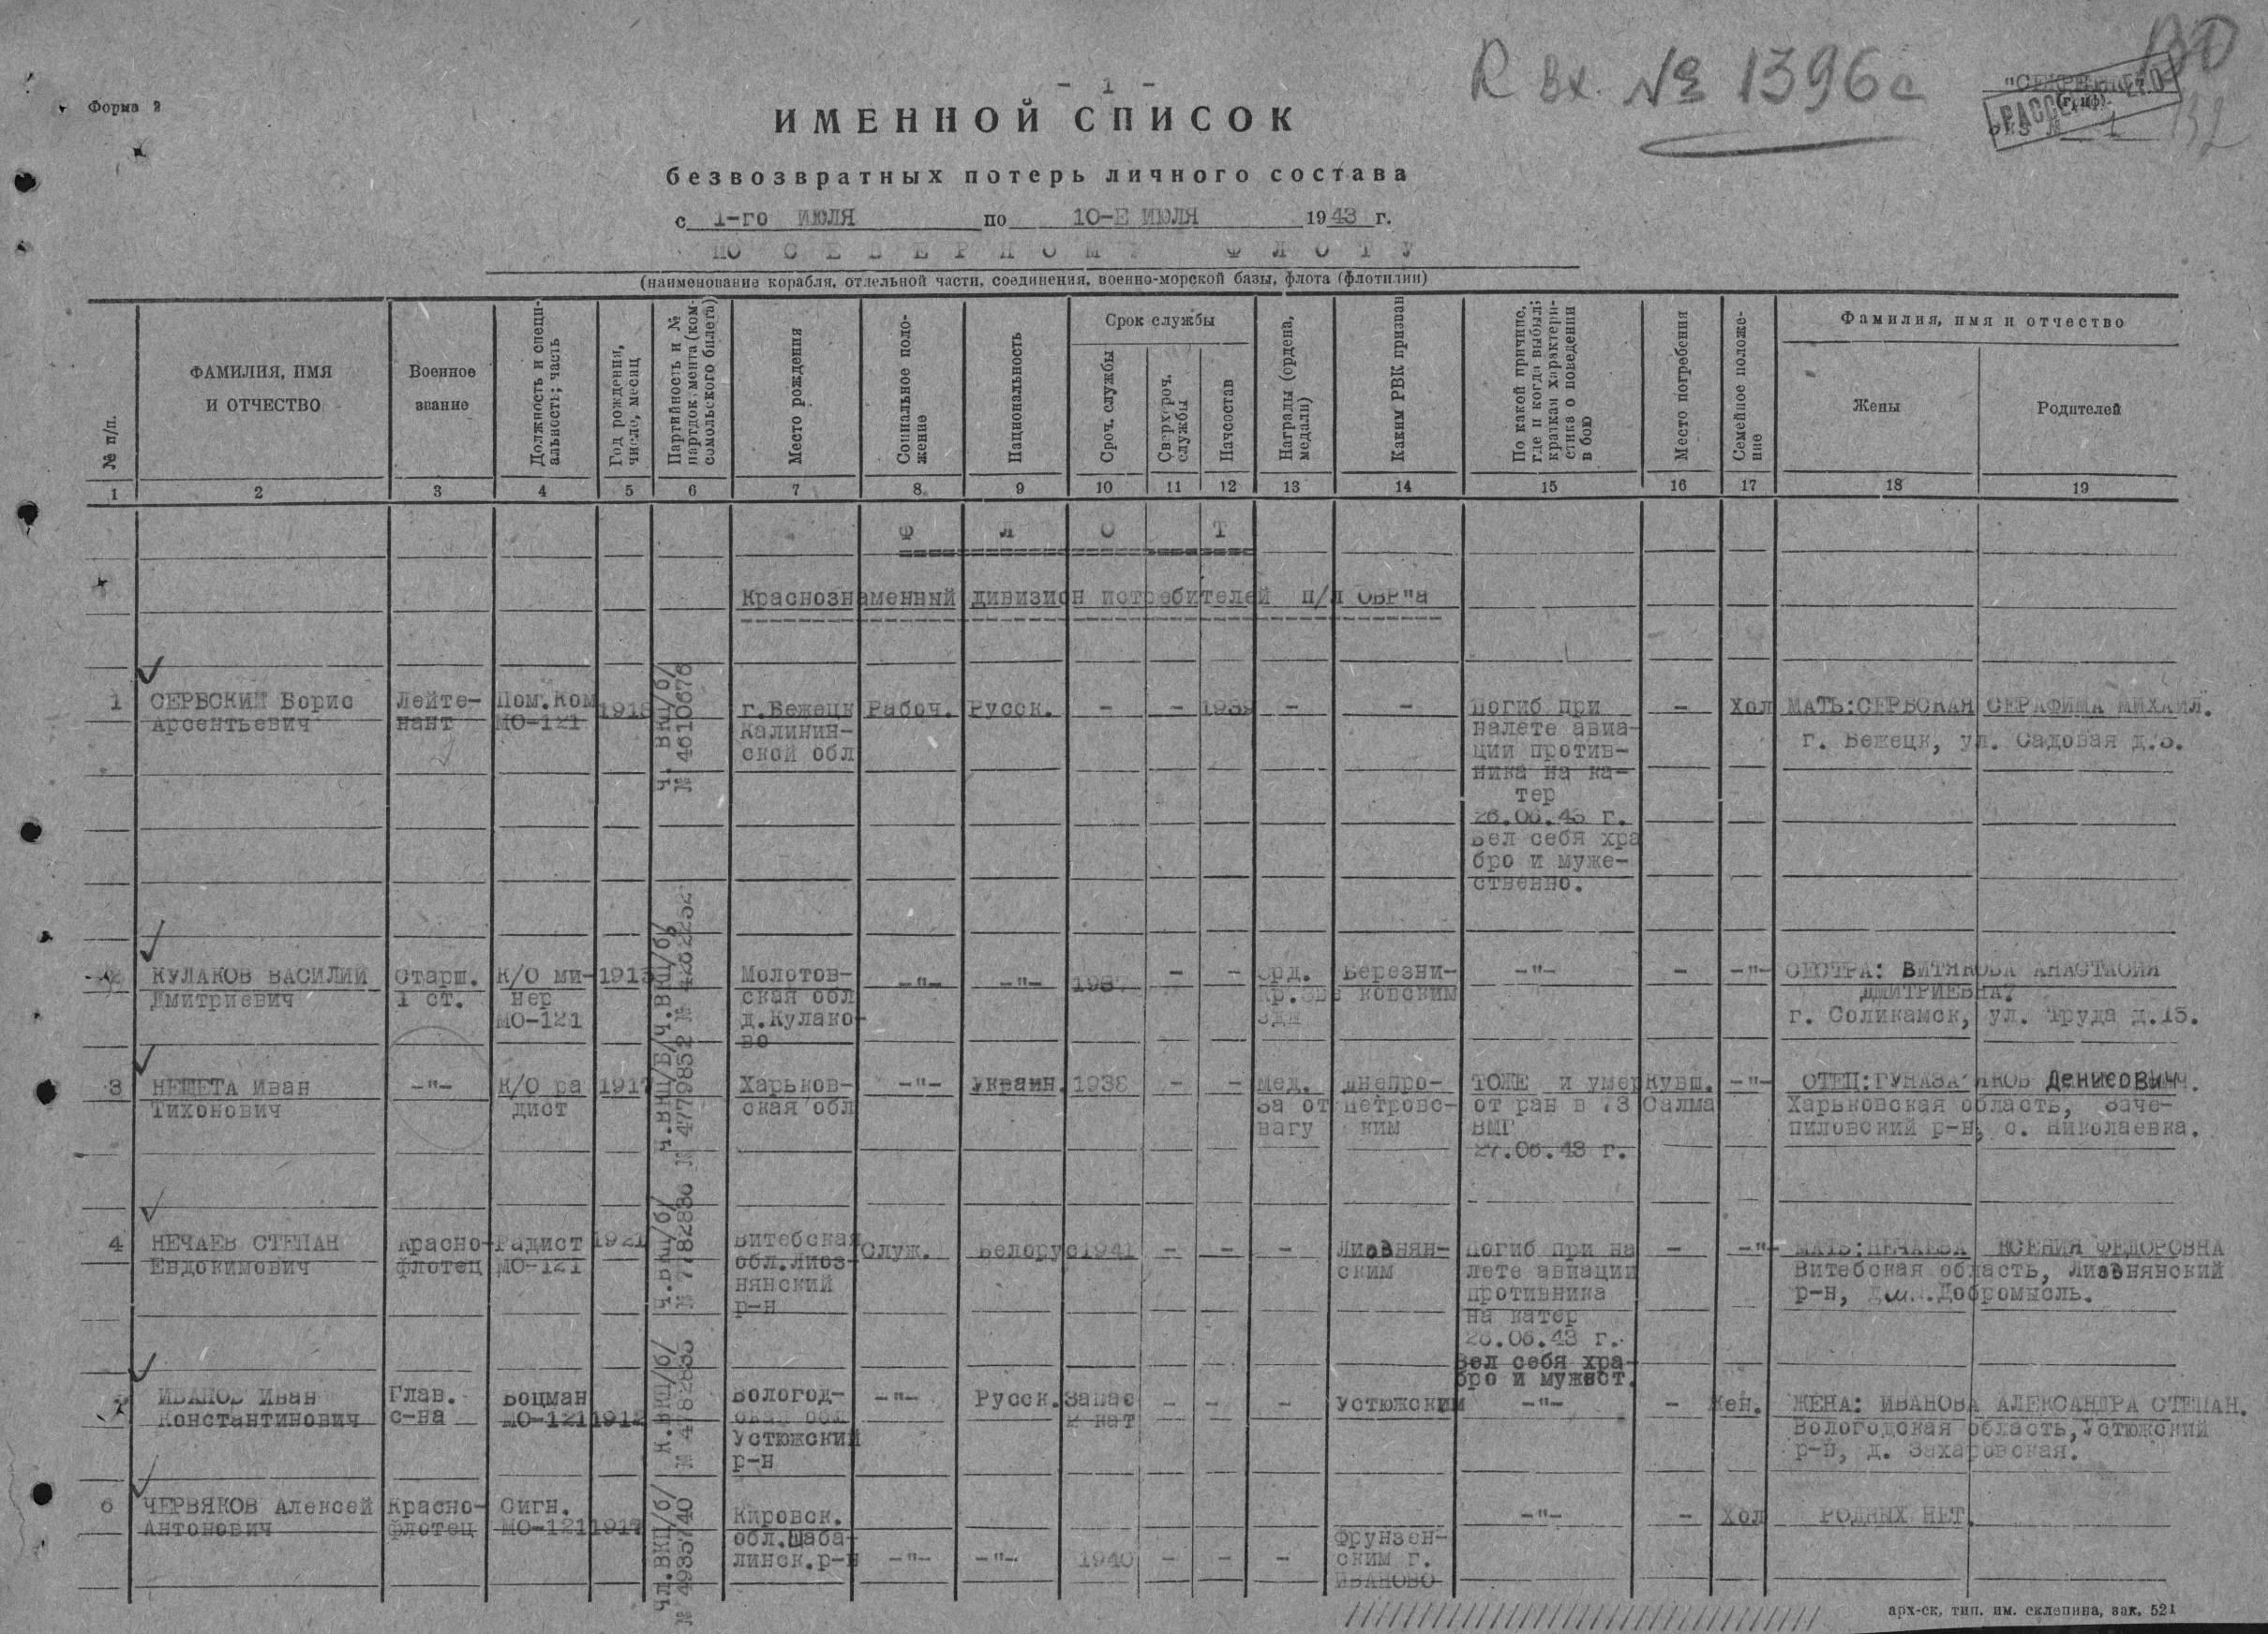 Форма 2
- 1 -
R Вх. № 1396с
ИМЕННОЙ СПИСОК
безвозвратных потерь личного состава
с 1-го ИЮЛЯ по 10-Е ИЮЛЯ 1943 г.
ПО СЕВЕРНОМУ ФЛОТУ
(наименование корабля, отдельной части, соединения, военно-морской базы, флота (флотилии)
№ п/п.
ФАМИЛИЯ, ИМЯ
И ОТЧЕСТВО
Военное
звание
Должность и специ-
альность; часть
Год рождения,
число, месяц
Партийность и №
партдокумента (ком-
сомольского билета)
Место рождения
Социальное поло-
жение
Национальность
Срок службы
Сроч. службы
Сверхсроч.
службы
Начсостав
Награды (ордена,
медали)
Каким РВК призван
По какой причине,
где и когда выбыл;
краткая характери-
стика о поведении
в бою
Место погребения
Семейное положе-
ние
Фамилия, имя и отчество
Жены
Родителей
1 2 3 4 5 6 7 8 9 10 11 12 13 14 15 16 17 18 19
Ф Л О Т
Краснознаменный дивизион истребителей п/л ОВР"а
1
СЕРБСКИЙ Борис
Арсентьевич
Лейте-
нант
Пом.Ком
МО-121
1918
ч. ВКП/б/
№ 4610676
г.Бежецк
Калинин-
ской обл
Рабоч.
Русск.
-
-
1939
-
-
Погиб при
налете авиа-
ции против-
ника на ка-
тер
26.06.43 г.
Вел себя хра
бро и муже-
ственно.
-
Хол
МАТЬ:СЕРБСКАЯ СЕРАФИМА МИХАИЛ.
г. Бежецк, ул. Садовая
2
КУЛАКОВ ВАСИЛИЙ
Дмитриевич
Старш.
1 ст.
К/О ми-
нер
МО-121
1913
ч.ВКП/б/
№ 4262252
Молотов-
ская обл
д.Кулако-
во
-"-
-"-
1937
-
-
Орд.
Кр.Зве
зды
Березни-
ковским
-"-
-
-"-
СЕСТРА: ВИТЯКОВА АНАСТАСИЯ
ДМИТРИЕВНА?
г. Соликамск, ул. Труда д.15.
3
НЕЩЕТА Иван
Тихонович
-"-
К/О ра
дист
1917
ч.ВКП/б/
№ 4779852
Харьков-
ская обл
-"-
Украин.
1938
-
-
Мед.
За от
вагу
Днепро-
петровс-
ким
ТОЖЕ и умер
от ран в 73
ВМГ
27.06.43 г.
Кувш.
Салма
-"-
ОТЕЦ: ЯКОВ Денисович.
Харьковская область, Заче-
пиловский р-н, с. Николаевка.
4
НЕЧАЕВ СТЕПАН
Евдокимович
Красно-
флотец
Радист
МО-121
1921
ч.ВКП/б/
Витебская
обл.Лиоз-
нянский
р-н
Служ.
Белорус
1941
-
-
-
Лиознян-
ским
Погиб при на
лете авиации
противника
на катер
26.06.43 г.
Вел себя хра-
бро и мужест.
-
-"-
МАТЬ:НЕЧАЕВА КСЕНИЯ ФЕДОРОВНА
Витебская область, Лиознянский
р-н, Добромысль.
ИВАНОВ Иван
Константинович
Глав.
с-на
Боцман
МО-121
1912
К.ВКП/б/
Вологод-
ская обл
Устюжский
р-н
-"-
Русск.
Запас
2 кат
-
-
-
Устюжским
-"-
-
Жен.
ЖЕНА: ИВАНОВА АЛЕКСАНДРА СТЕПАН.
Вологодская область,Устюжский
р-н, д. Захаровская.
6
ЧЕРВЯКОВ Алексей
Антонович
Красно-
флотец
Сигн.
МО-121
1917
Чл.ВКП/б/
№ 4935740
Кировск.
обл.Шаба-
линск.р-н
-"-
-"-
1940
-
-
-
Фрунзен-
ским г.
ИВАНОВО
-"-
-
Хол
РОДНЫХ НЕТ.
арх-ск, тип. им. склепина, зак. 521